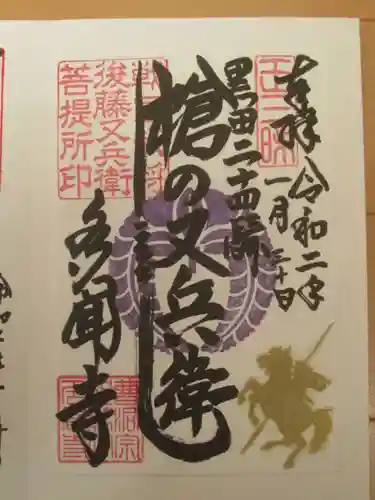 奉拝
令和二年
一月三十日
黒田二十四騎
槍の又兵衛
戦国武将
後藤又兵衛
菩提所印
多聞寺
曹洞宗